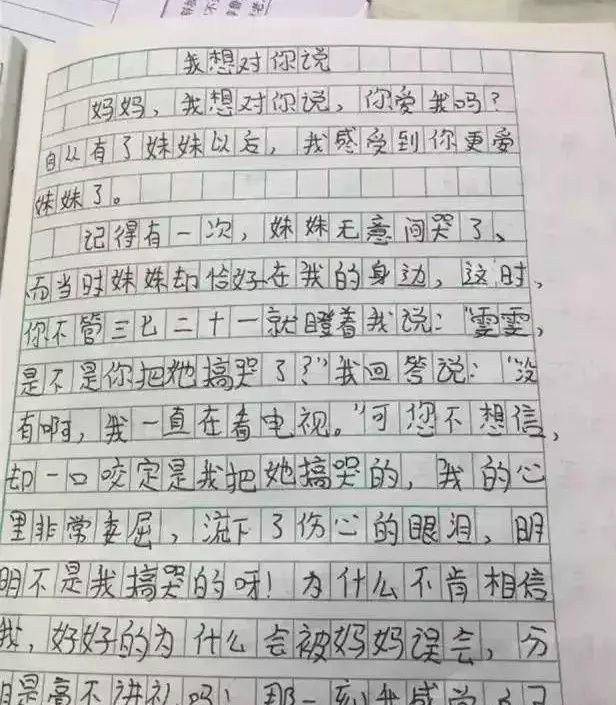 我想对你说
妈妈，我想对你说，你爱我吗？
自从有了妹妹以后，我感受到你更爱
妹妹了。
记得有一次，妹妹无意间哭了、
而当时妹妹却恰好在我的身边，这时，
你不管三七二十一就瞪着我说：“雯雯，
是不是你把她搞哭了？”我回答说：“没
有啊，我一直在看电视。”可您不想信，
却一口咬定是我把她搞哭的，我的心
里非常委屈，流下了伤心的眼泪，明
明不是我搞哭的呀！为什么不肯相信
我，好好的为什么会被妈妈误会，分
明是蛮不讲礼吗！那一刻我感觉